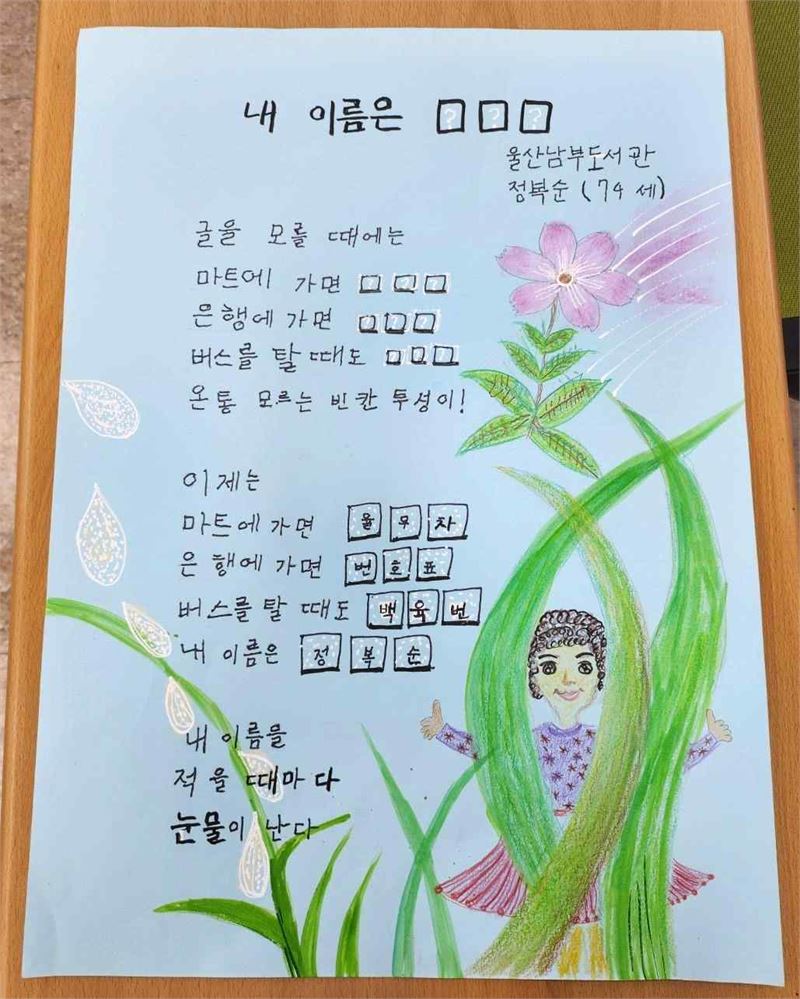 내 이름은 □□□
울산남부도서관
정복순 (74세)
글을 모를 때에는
마트에 가면 □□□
은행에 가면 □□□
버스를 탈 때도 □□□
온통 모르는 빈칸 투성이!
이제는
마트에 가면 율무차
은행에 가면 번호표
버스를 탈 때도 백육번
내 이름은 정복순
내 이름을
적을 때마다
눈물이 난다